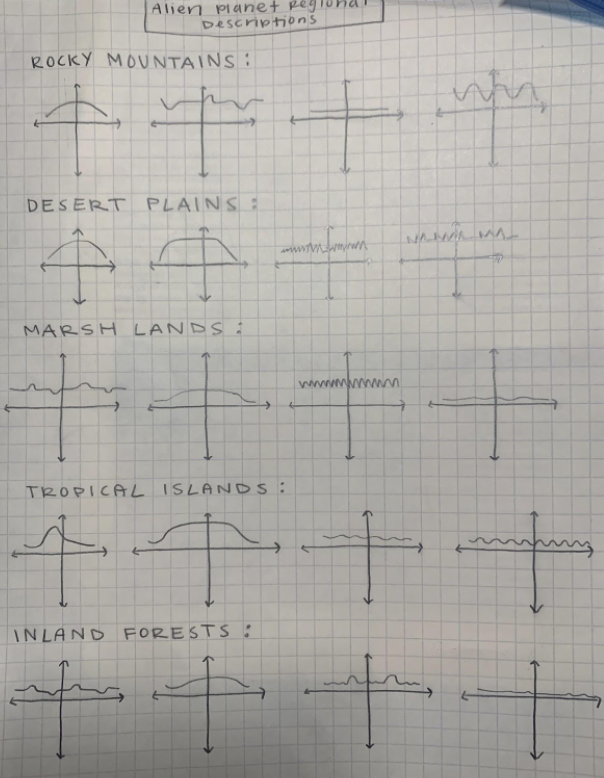 Alien Planet Regional
Descriptions
ROCKY MOUNTAINS:
DESERT PLAINS:
MARSH LANDS:
TROPICAL ISLANDS:
INLAND FORESTS: